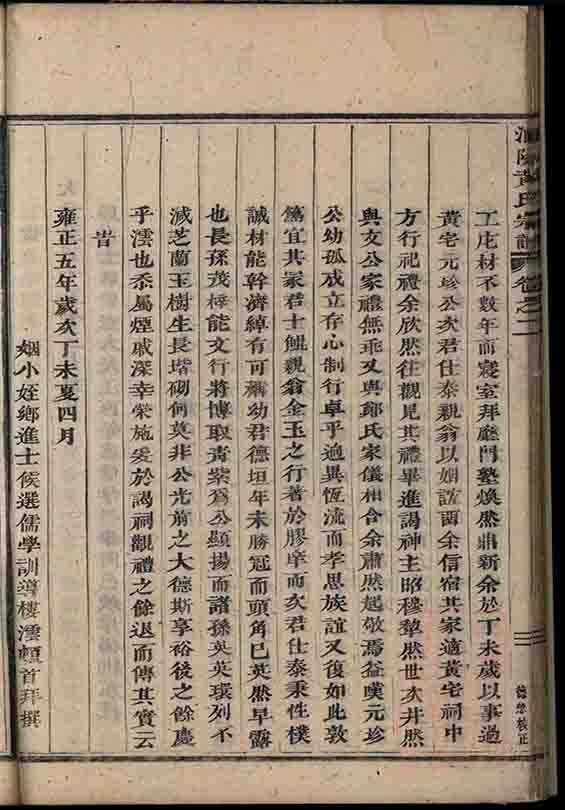 黃氏宗譜 卷之二
工庀材不數年而寢室拜廳門塾煥然鼎新余於丁未歲以事過
黃宅元珍公次君仕泰親翁以姻誼畱余信宿其家適黃宅祠中
方行祀禮余欣然往觀見其禮畢進謁神主昭穆犂然世次井然
與文公家禮無乖又與鄭氏家儀相合余肅然起敬焉益嘆元珍
公幼孤成立存心制行卓乎逈異恆流而孝思族誼又復如此敦
篤宜其家君士鯤親翁金玉之行著於膠庠而次君仕泰秉性樸
誠材能幹濟綽有可稱幼君德垣年未勝冠而頭角已英然早露
也長孫茂樟能文行將博取靑紫爲公顯揚而諸孫英英環列不
減芝蘭玉樹生長堦砌何莫非公光前之大德斯享裕後之餘慶
乎澐也忝屬煙戚深幸棠施爰於謁祠觀禮之餘退而傳其實云
旹
雍正五年歲次丁未夏四月
姻小姪鄉進士候選儒學訓導樓澐頓首拜撰
德忠校正